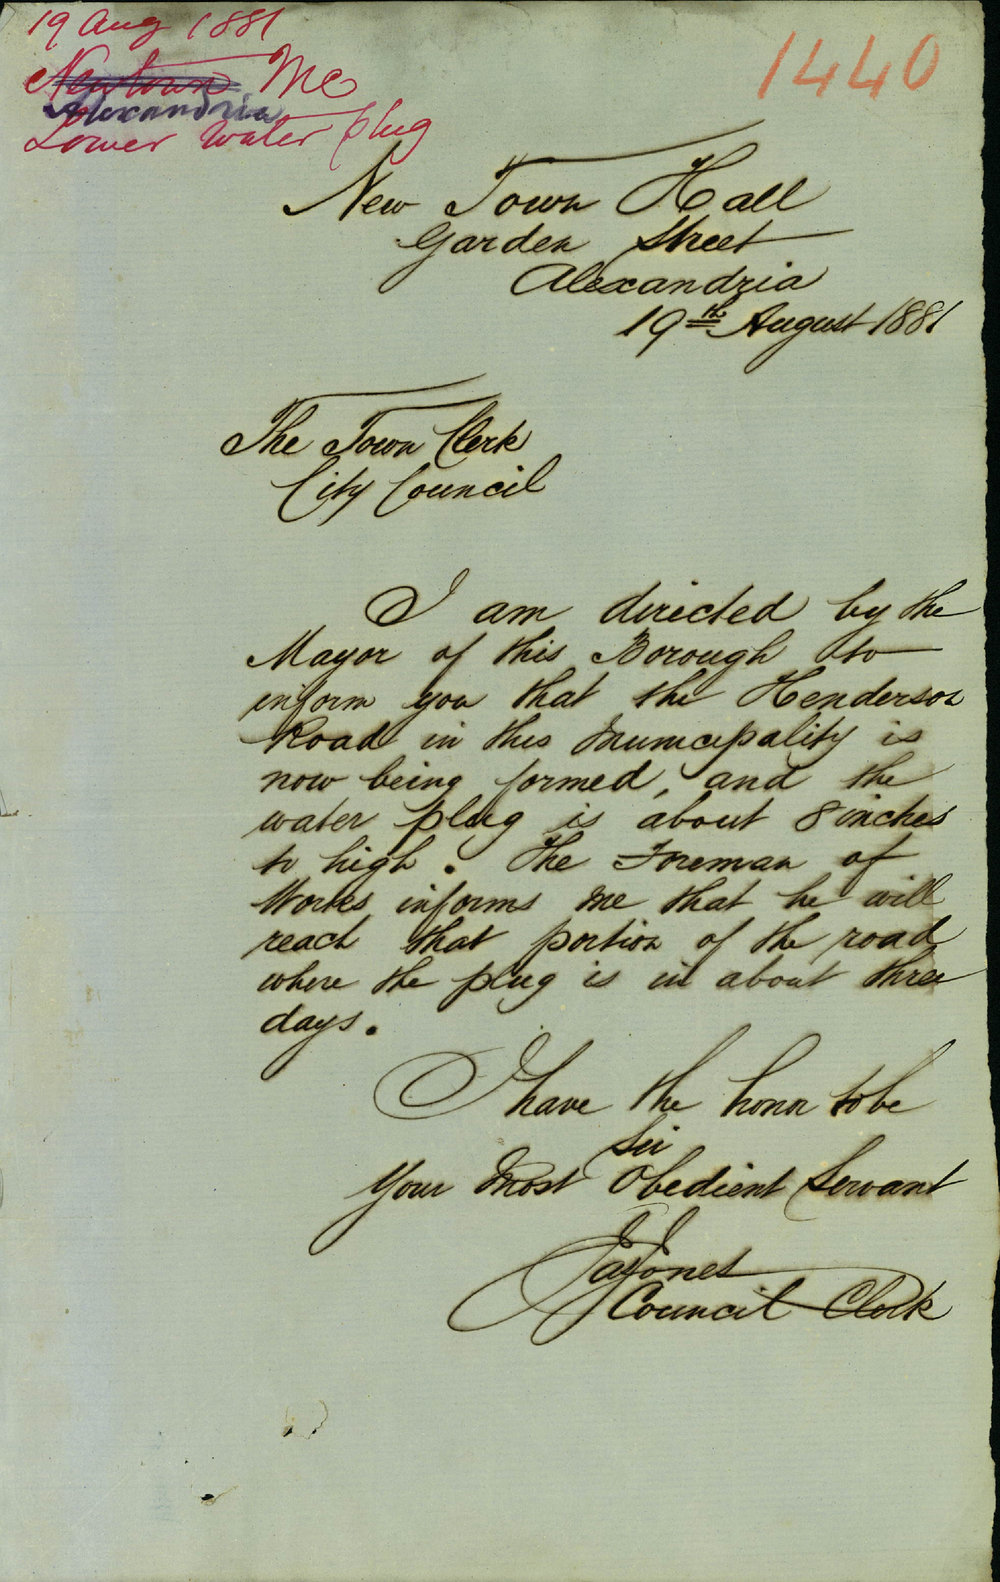 19 Aug 1881
1440
Newtown MC
Alexandria
Lower Water plug
New Town Hall
Garden Street
Alexandria
19th August 1881
The Town Clerk
City Council
I am directed by the
Mayor of this Borough to
inform you that the Henderson
Road in this Municipality is
now being formed, and the
water plug is about 8 inches
to high. The Foreman of
Works informs me that he will
reach that portion of the road
where the plug is in about three
days.
I have the honor to be
Sir
Your Most Obedient Servant
Jas Jones
Council Clerk